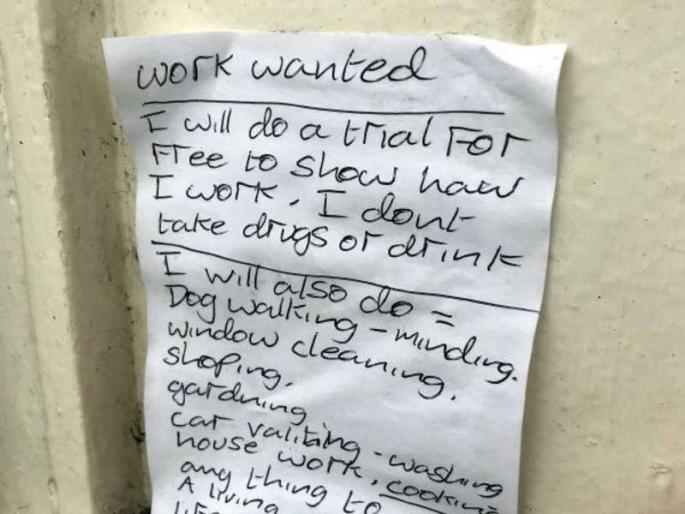 work wanted
I will do a trial For
Free to show how
I work. I dont
take drugs or drink
I will also do =
Dog walking - minding.
window cleaning.
shoping.
gardning
car valiting - washing
house work. cooking
any thing to
A living